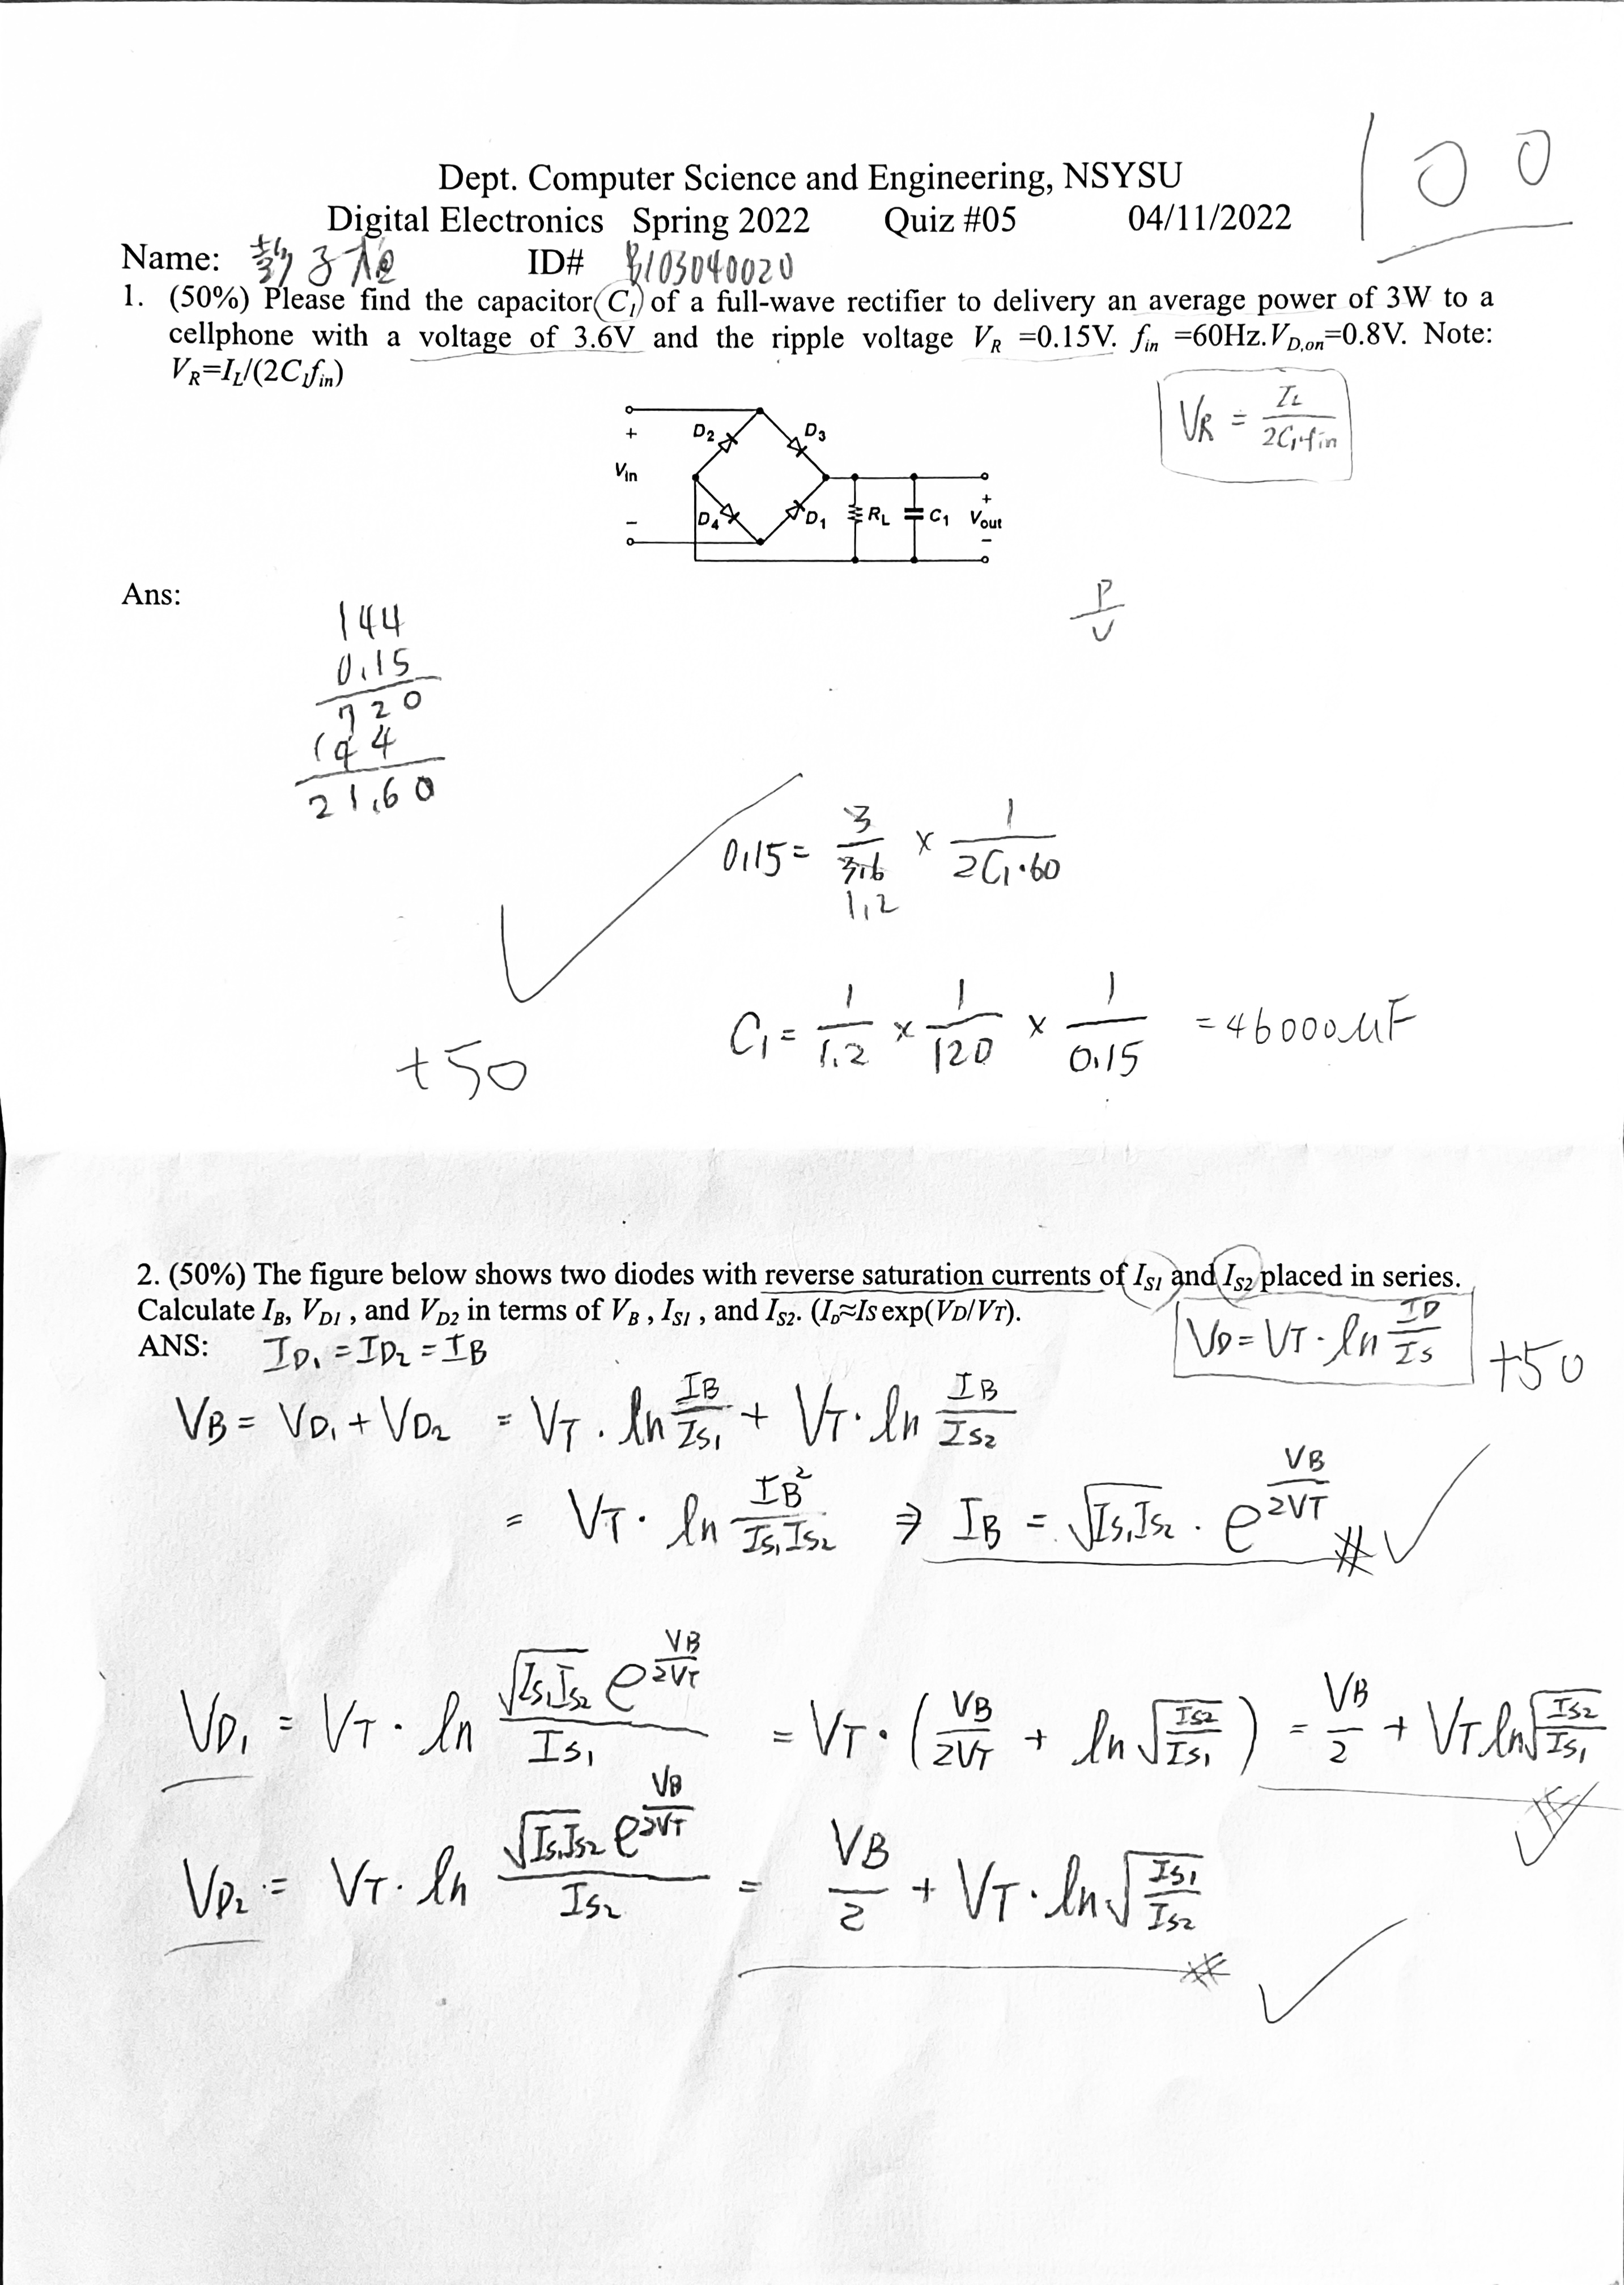 100
Dept. Computer Science and Engineering, NSYSU
Digital Electronics Spring 2022 Quiz #05 04/11/2022
Name: 彭子 ID# B103040020
1. (50%) Please find the capacitor C1 of a full-wave rectifier to delivery an average power of 3W to a
cellphone with a voltage of 3.6V and the ripple voltage VR =0.15V. fin =60Hz. VD,on=0.8V. Note:
VR=IL/(2C1fin)
VR = IL / 2C1·fin
D2 D3
+
Vin
−
D4 D1 RL C1
+
Vout
−
Ans:
P / V
144
0.15
720
144
21.60
0.15 = 3 / 3.6 × 1 / 2C1·60
1.2
C1 = 1 / 1.2 × 1 / 120 × 1 / 0.15 = 46000 μF
+50
2. (50%) The figure below shows two diodes with reverse saturation currents of IS1 and IS2 placed in series.
Calculate IB, VD1 , and VD2 in terms of VB , IS1 , and IS2. (ID≈Is exp(VD/VT).
VD = VT · ln ID / IS
+50
ANS: ID1 = ID2 = IB
VB = VD1 + VD2 = VT · ln IB / IS1 + VT · ln IB / IS2
= VT · ln IB² / IS1 IS2 ⇒ IB = √IS1IS2 · e^(VB / 2VT) #
VD1 = VT · ln √IS1IS2 e^(VB / 2VT) / IS1 = VT · ( VB / 2VT + ln √(IS2 / IS1) ) = VB / 2 + VT ln √(IS2 / IS1) #
VD2 = VT · ln √IS1IS2 e^(VB / 2VT) / IS2 = VB / 2 + VT · ln √(IS1 / IS2) #